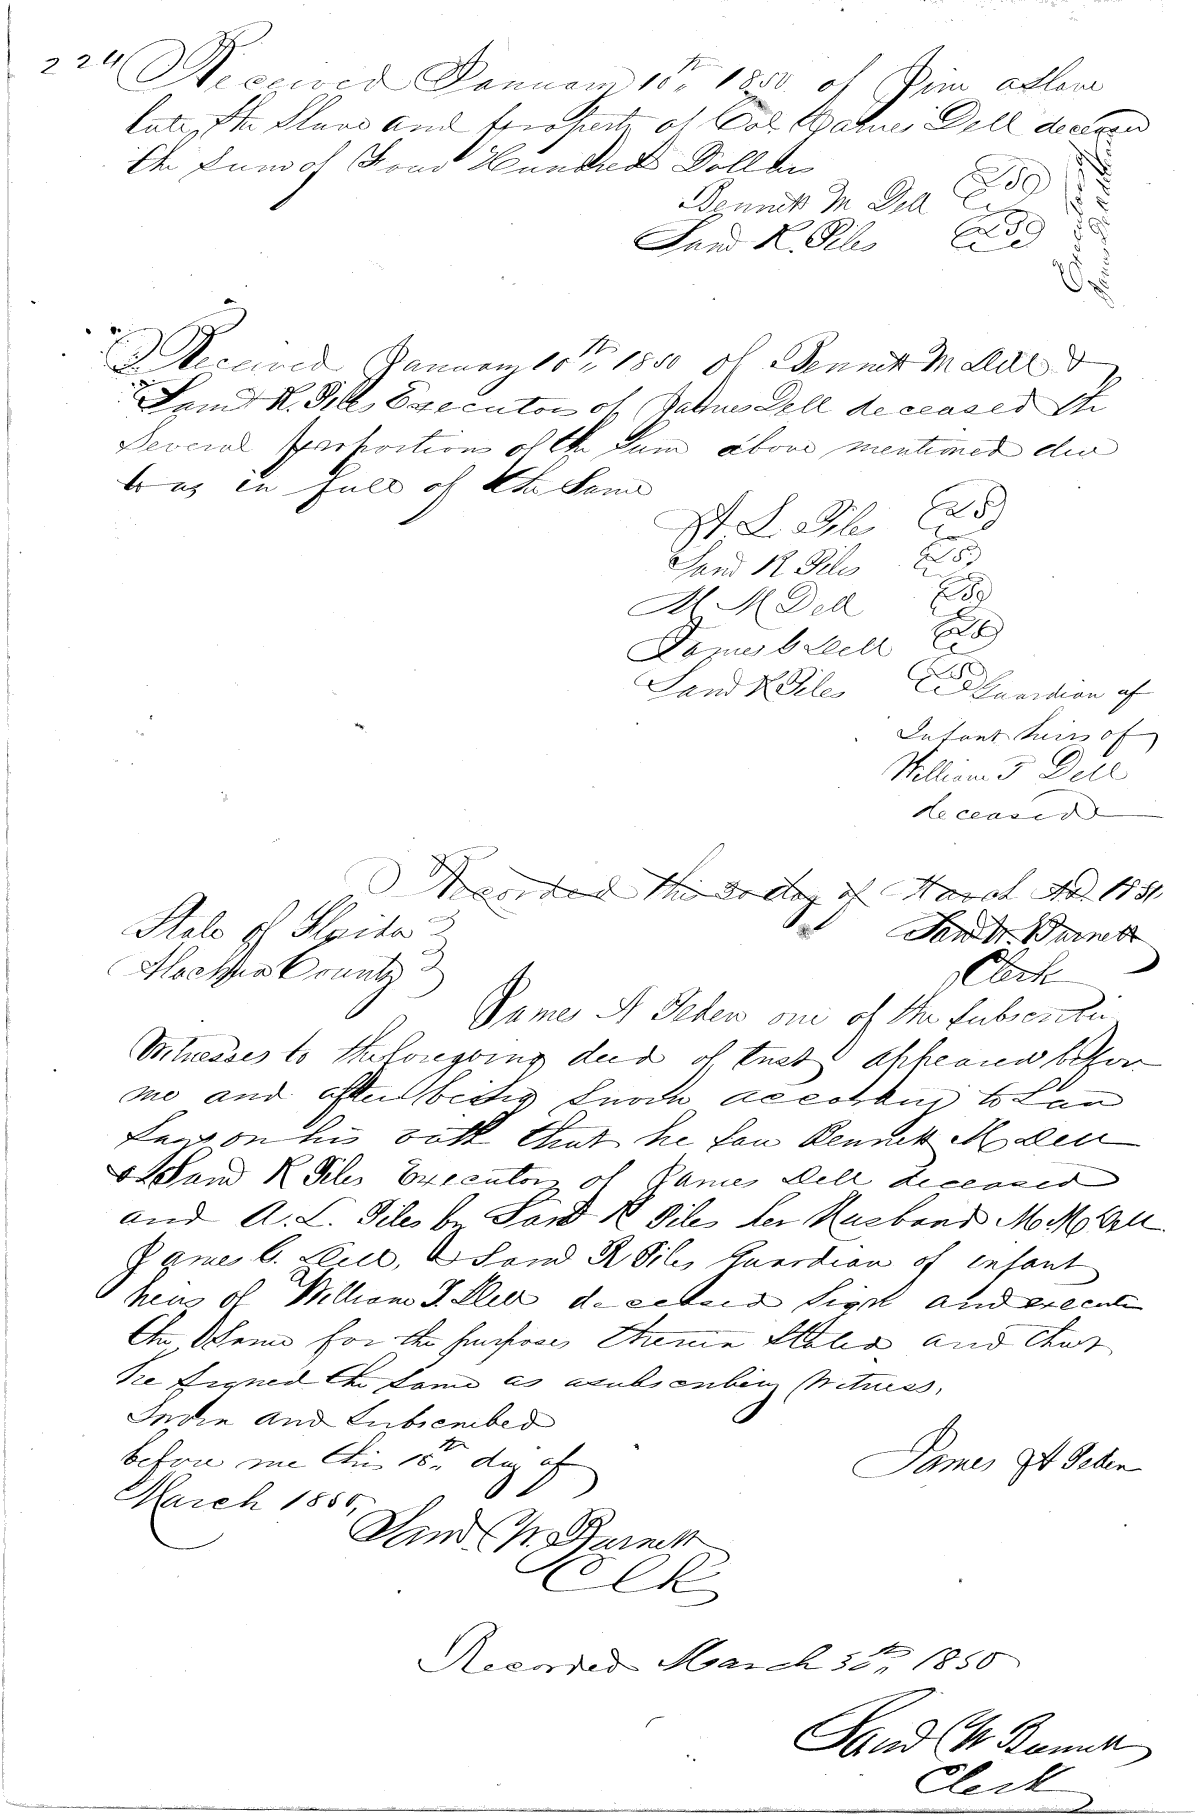 224
Received January 10th, 1850 of Jim a Slave
late the Slave and property of Col James Dell deceased
the Sum of Four Hundred Dollars
Bennett M Dell
Saml R. Piles
Executors of
James Dell
Received January 10th, 1850 of Bennett M Dell &
Saml R. Piles Executors of James Dell deceased the
Several proportions of the Sum above mentioned due
to us in full of the Same
A. L. Piles
Saml R Piles
M. M Dell
James C Dell
Saml R Piles Guardian of
Infant heirs of
William J Dell
deceased
Recorded this 30 day of March AD. 1851
Saml W. Burnett
Clerk
State of Florida
Alachua County
James A Peden one of the Subscribin
Witnesses to the foregoing deed of trust appeared before
me and after being Sworn according to Law
Says on his oath that he Saw Bennett M Dell
& Saml R Piles Executors of James Dell deceased
and A. L. Piles by Saml R Piles her Husband M. M. Dell
James C. Dell, & Saml R Piles Guardian of infant
heirs of William J. Dell deceased Sign and execute
the Same for the purposes therein Stated and that
he Signed the Same as a subscribing Witness.
Sworn and Subscribed
before me this 15th day of
March 1850,
James A Peden
Saml W. Burnett
Clk
Recorded March 30th, 1850
Saml W Burnett
Clerk